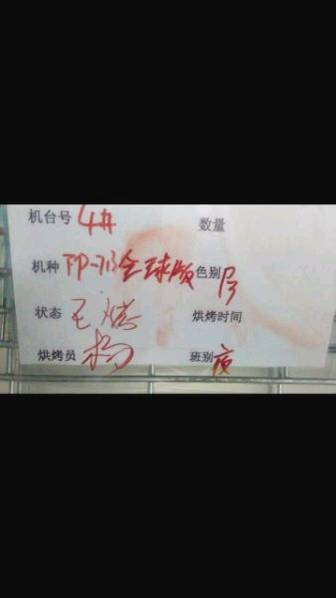 机台号 4# 数量
机种 TP-713全球版 色别
状态 烘烤时间
烘烤员 杨 班别 夜